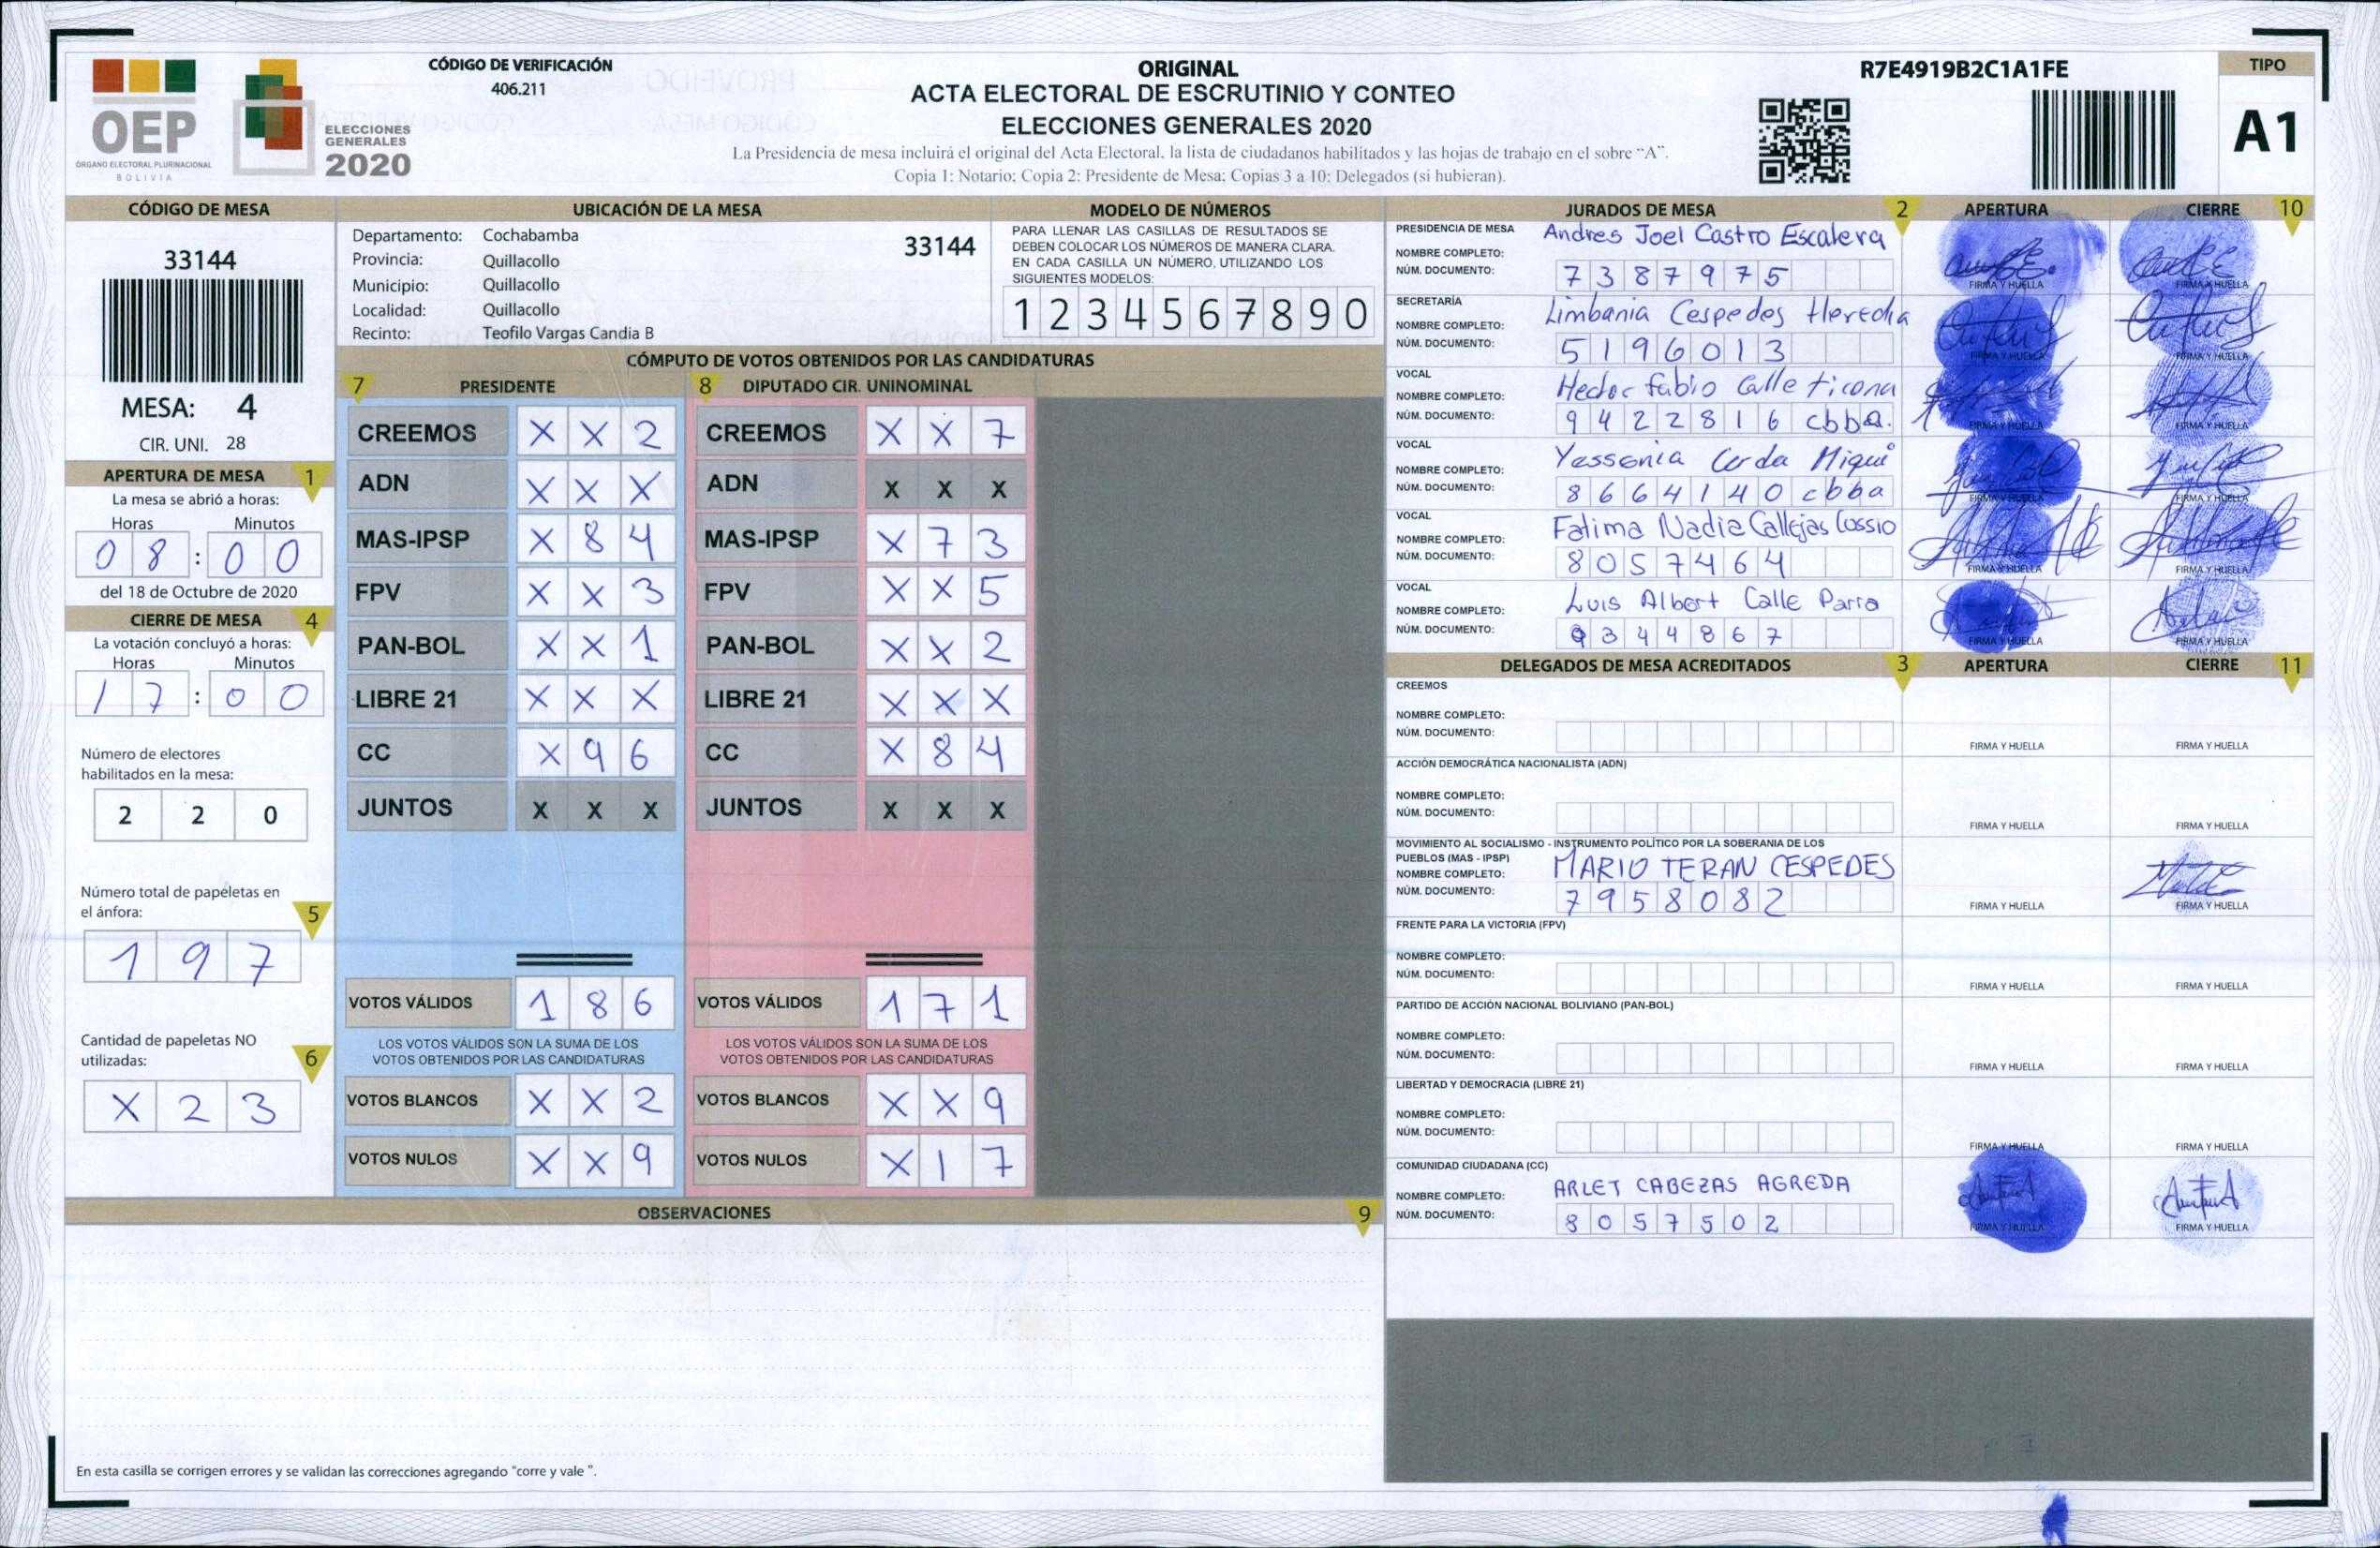 OEP
ÓRGANO ELECTORAL PLURINACIONAL
BOLIVIA
ELECCIONES
GENERALES
2020
CÓDIGO DE VERIFICACIÓN
406.211
ORIGINAL
ACTA ELECTORAL DE ESCRUTINIO Y CONTEO
ELECCIONES GENERALES 2020
La Presidencia de mesa incluirá el original del Acta Electoral, la lista de ciudadanos habilitados y las hojas de trabajo en el sobre “A”.
Copia 1: Notario; Copia 2: Presidente de Mesa; Copias 3 a 10: Delegados (si hubieran).
R7E4919B2C1A1FE
TIPO
A1
CÓDIGO DE MESA
33144
MESA: 4
CIR. UNI. 28
APERTURA DE MESA 1
La mesa se abrió a horas:
Horas Minutos
08:00
del 18 de Octubre de 2020
CIERRE DE MESA 4
La votación concluyó a horas:
Horas Minutos
17:00
Número de electores
habilitados en la mesa:
2 2 0
Número total de papeletas en
el ánfora: 5
1 9 7
Cantidad de papeletas NO
utilizadas: 6
X 2 3
UBICACIÓN DE LA MESA
Departamento: Cochabamba 33144
Provincia: Quillacollo
Municipio: Quillacollo
Localidad: Quillacollo
Recinto: Teofilo Vargas Candia B
MODELO DE NÚMEROS
PARA LLENAR LAS CASILLAS DE RESULTADOS SE
DEBEN COLOCAR LOS NÚMEROS DE MANERA CLARA.
EN CADA CASILLA UN NÚMERO, UTILIZANDO LOS
SIGUIENTES MODELOS:
1 2 3 4 5 6 7 8 9 0
CÓMPUTO DE VOTOS OBTENIDOS POR LAS CANDIDATURAS
7 PRESIDENTE 8 DIPUTADO CIR. UNINOMINAL
CREEMOS X X 2 CREEMOS X X 7
ADN X X X ADN X X X
MAS-IPSP X 8 4 MAS-IPSP X 7 3
FPV X X 3 FPV X X 5
PAN-BOL X X 1 PAN-BOL X X 2
LIBRE 21 X X X LIBRE 21 X X X
CC X 9 6 CC X 8 4
JUNTOS X X X JUNTOS X X X
VOTOS VÁLIDOS 1 8 6 VOTOS VÁLIDOS 1 7 1
LOS VOTOS VÁLIDOS SON LA SUMA DE LOS LOS VOTOS VÁLIDOS SON LA SUMA DE LOS
VOTOS OBTENIDOS POR LAS CANDIDATURAS VOTOS OBTENIDOS POR LAS CANDIDATURAS
VOTOS BLANCOS X X 2 VOTOS BLANCOS X X 9
VOTOS NULOS X X 9 VOTOS NULOS X 1 7
OBSERVACIONES 9
En esta casilla se corrigen errores y se validan las correcciones agregando "corre y vale ".
JURADOS DE MESA 2 APERTURA CIERRE 10
PRESIDENCIA DE MESA
NOMBRE COMPLETO: Andres Joel Castro Escalera
NÚM. DOCUMENTO: 7387975 FIRMA Y HUELLA FIRMA Y HUELLA
SECRETARÍA
NOMBRE COMPLETO: Limbania Cespedes Heredia
NÚM. DOCUMENTO: 5196013 FIRMA Y HUELLA FIRMA Y HUELLA
VOCAL
NOMBRE COMPLETO: Hector fabio Calle ticona
NÚM. DOCUMENTO: 9422816 cbba. FIRMA Y HUELLA FIRMA Y HUELLA
VOCAL
NOMBRE COMPLETO: Yessenia Cerda Miqui
NÚM. DOCUMENTO: 8664140 cbba FIRMA Y HUELLA FIRMA Y HUELLA
VOCAL
NOMBRE COMPLETO: Fatima Nadia Callejas Cossio
NÚM. DOCUMENTO: 8057464 FIRMA Y HUELLA FIRMA Y HUELLA
VOCAL
NOMBRE COMPLETO: Luis Albert Calle Parra
NÚM. DOCUMENTO: 9344867 FIRMA Y HUELLA FIRMA Y HUELLA
DELEGADOS DE MESA ACREDITADOS 3 APERTURA CIERRE 11
CREEMOS
NOMBRE COMPLETO:
NÚM. DOCUMENTO: FIRMA Y HUELLA FIRMA Y HUELLA
ACCIÓN DEMOCRÁTICA NACIONALISTA (ADN)
NOMBRE COMPLETO:
NÚM. DOCUMENTO: FIRMA Y HUELLA FIRMA Y HUELLA
MOVIMIENTO AL SOCIALISMO - INSTRUMENTO POLÍTICO POR LA SOBERANIA DE LOS
PUEBLOS (MAS - IPSP)
NOMBRE COMPLETO: MARIO TERAN CESPEDES
NÚM. DOCUMENTO: 7958082 FIRMA Y HUELLA FIRMA Y HUELLA
FRENTE PARA LA VICTORIA (FPV)
NOMBRE COMPLETO:
NÚM. DOCUMENTO: FIRMA Y HUELLA FIRMA Y HUELLA
PARTIDO DE ACCIÓN NACIONAL BOLIVIANO (PAN-BOL)
NOMBRE COMPLETO:
NÚM. DOCUMENTO: FIRMA Y HUELLA FIRMA Y HUELLA
LIBERTAD Y DEMOCRACIA (LIBRE 21)
NOMBRE COMPLETO:
NÚM. DOCUMENTO: FIRMA Y HUELLA FIRMA Y HUELLA
COMUNIDAD CIUDADANA (CC)
NOMBRE COMPLETO: ARLET CABEZAS AGREDA
NÚM. DOCUMENTO: 8057502 FIRMA Y HUELLA FIRMA Y HUELLA